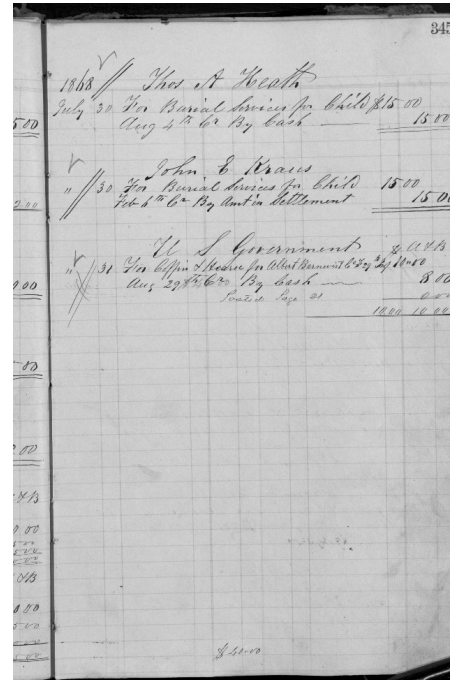 345
1868 // Thos A Heath
July 30 For Burial Services for Child $15.00
Aug 4th Cr By Cash 15 00
John E Kraus
" 30 For Burial Services for Child 15 00
Feb 6th Cr By Amt in Settlement 15 00
U S Government $ A & B
" 31 For Coffin & Hearse for Albert 10 00
Aug 29th Cr By Cash 8 00
Page
10.00 10 00
$40.00